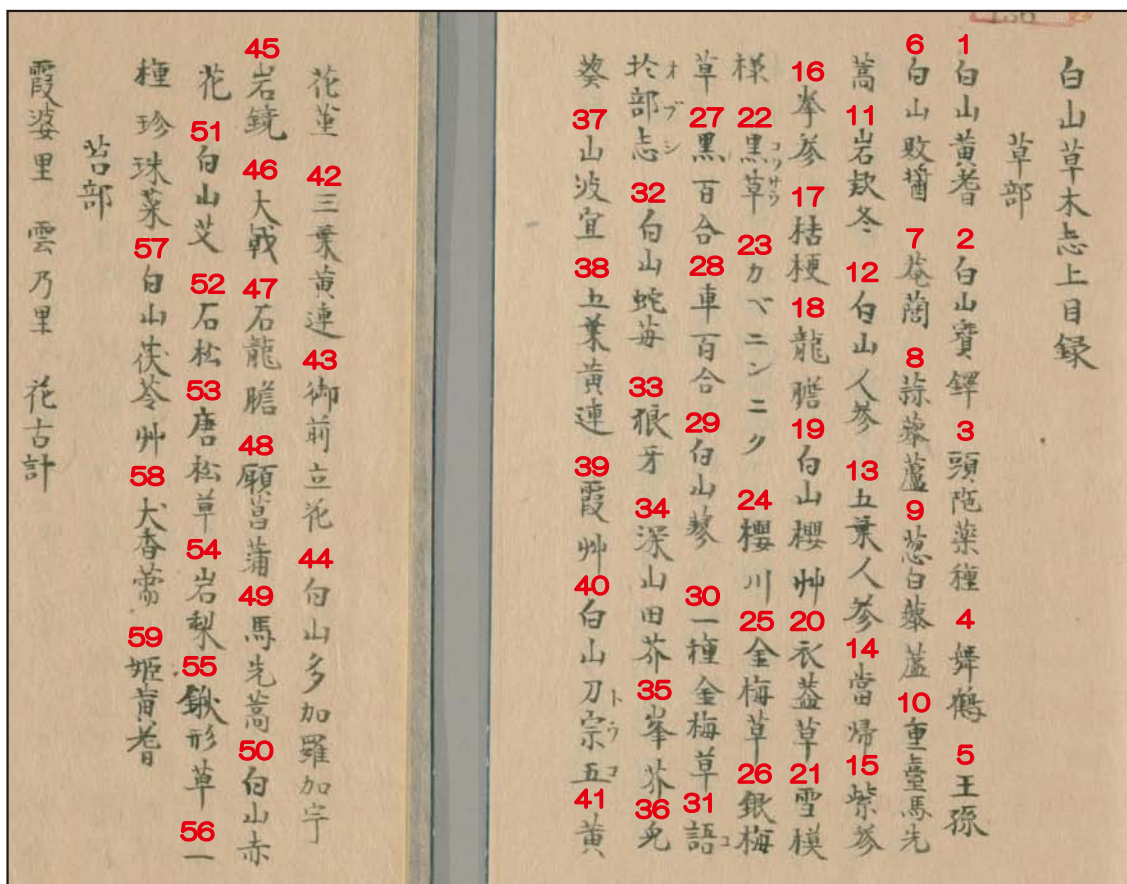 白山草木志上目録
草部
1白山黄耆 2白山寶鐸 3頭陁薬種 4舞鶴 5王孫
6白山敗醤 7菴䕡 8蒜藜蘆 9葱白藜蘆 10重臺馬先
蒿 11岩欵冬 12白山人参 13五葉人参 14當帰 15紫参
16拳参 17桔梗 18龍膽 19白山櫻艸 20衣盖草 21雪模
様 22黒草コクサウ 23カベニンニク 24櫻川 25金梅草 26銀梅
草 27黒百合 28車百合 29白山蓼 30一種金梅草 31語コ
於部志オブシ 32白山蛇苺 33狼牙 34深山田芥 35峯芥 36兎
葵 37山波宜 38五葉黄連 39霞艸 40白山刀宗五トウゴ 41黄
花菫 42三葉黄連 43御前立花 44白山多加羅加宇
45岩鏡 46大戟 47石龍膽 48願菖蒲 49馬先蒿 50白山赤
花 51白山艾 52石松 53唐松草 54岩梨 55鍬形草 56一
種珍珠菜 57白山茯苓艸 58大香蕾 59姫黄耆
苔部
霞婆里 雲乃里 花古計